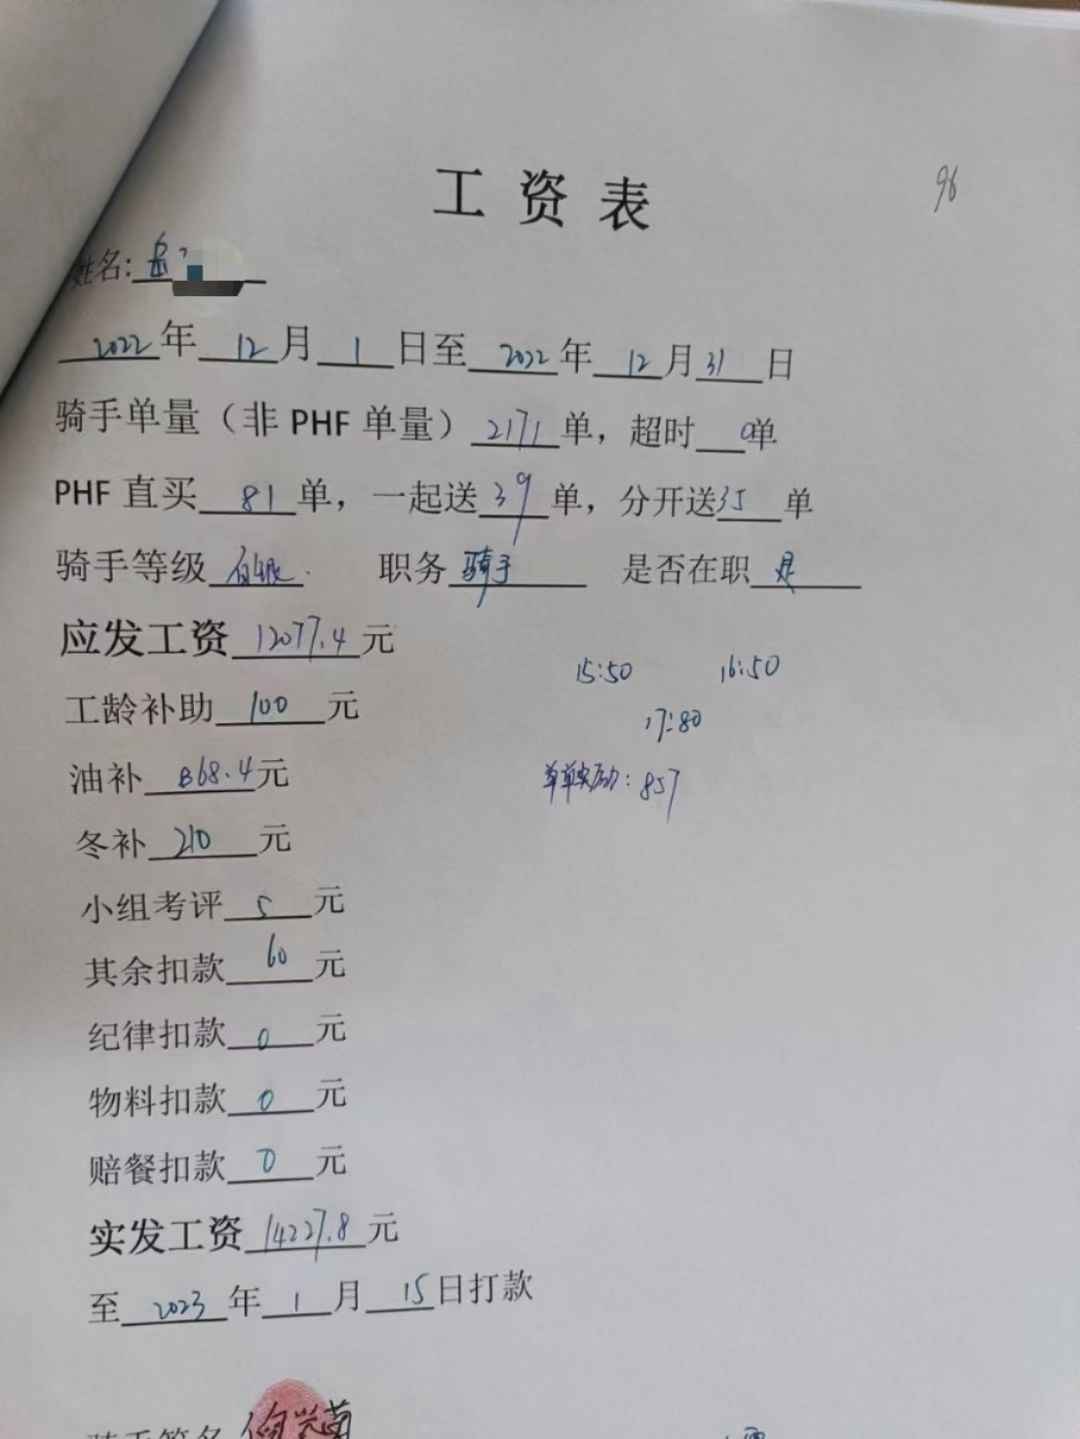 工资表
96
姓名:岳
2022年12月1日至2022年12月31日
骑手单量（非PHF单量）2171单，超时0单
PHF直买81单，一起送39单，分开送35单
骑手等级 职务骑手 是否在职是
应发工资12077.4元
15:50 16:50
工龄补助100元
17:80
油补868.4元
单单奖励:857
冬补210元
小组考评5元
其余扣款60元
纪律扣款0元
物料扣款0元
赔餐扣款0元
实发工资14227.8元
至2023年1月15日打款
骑手签名